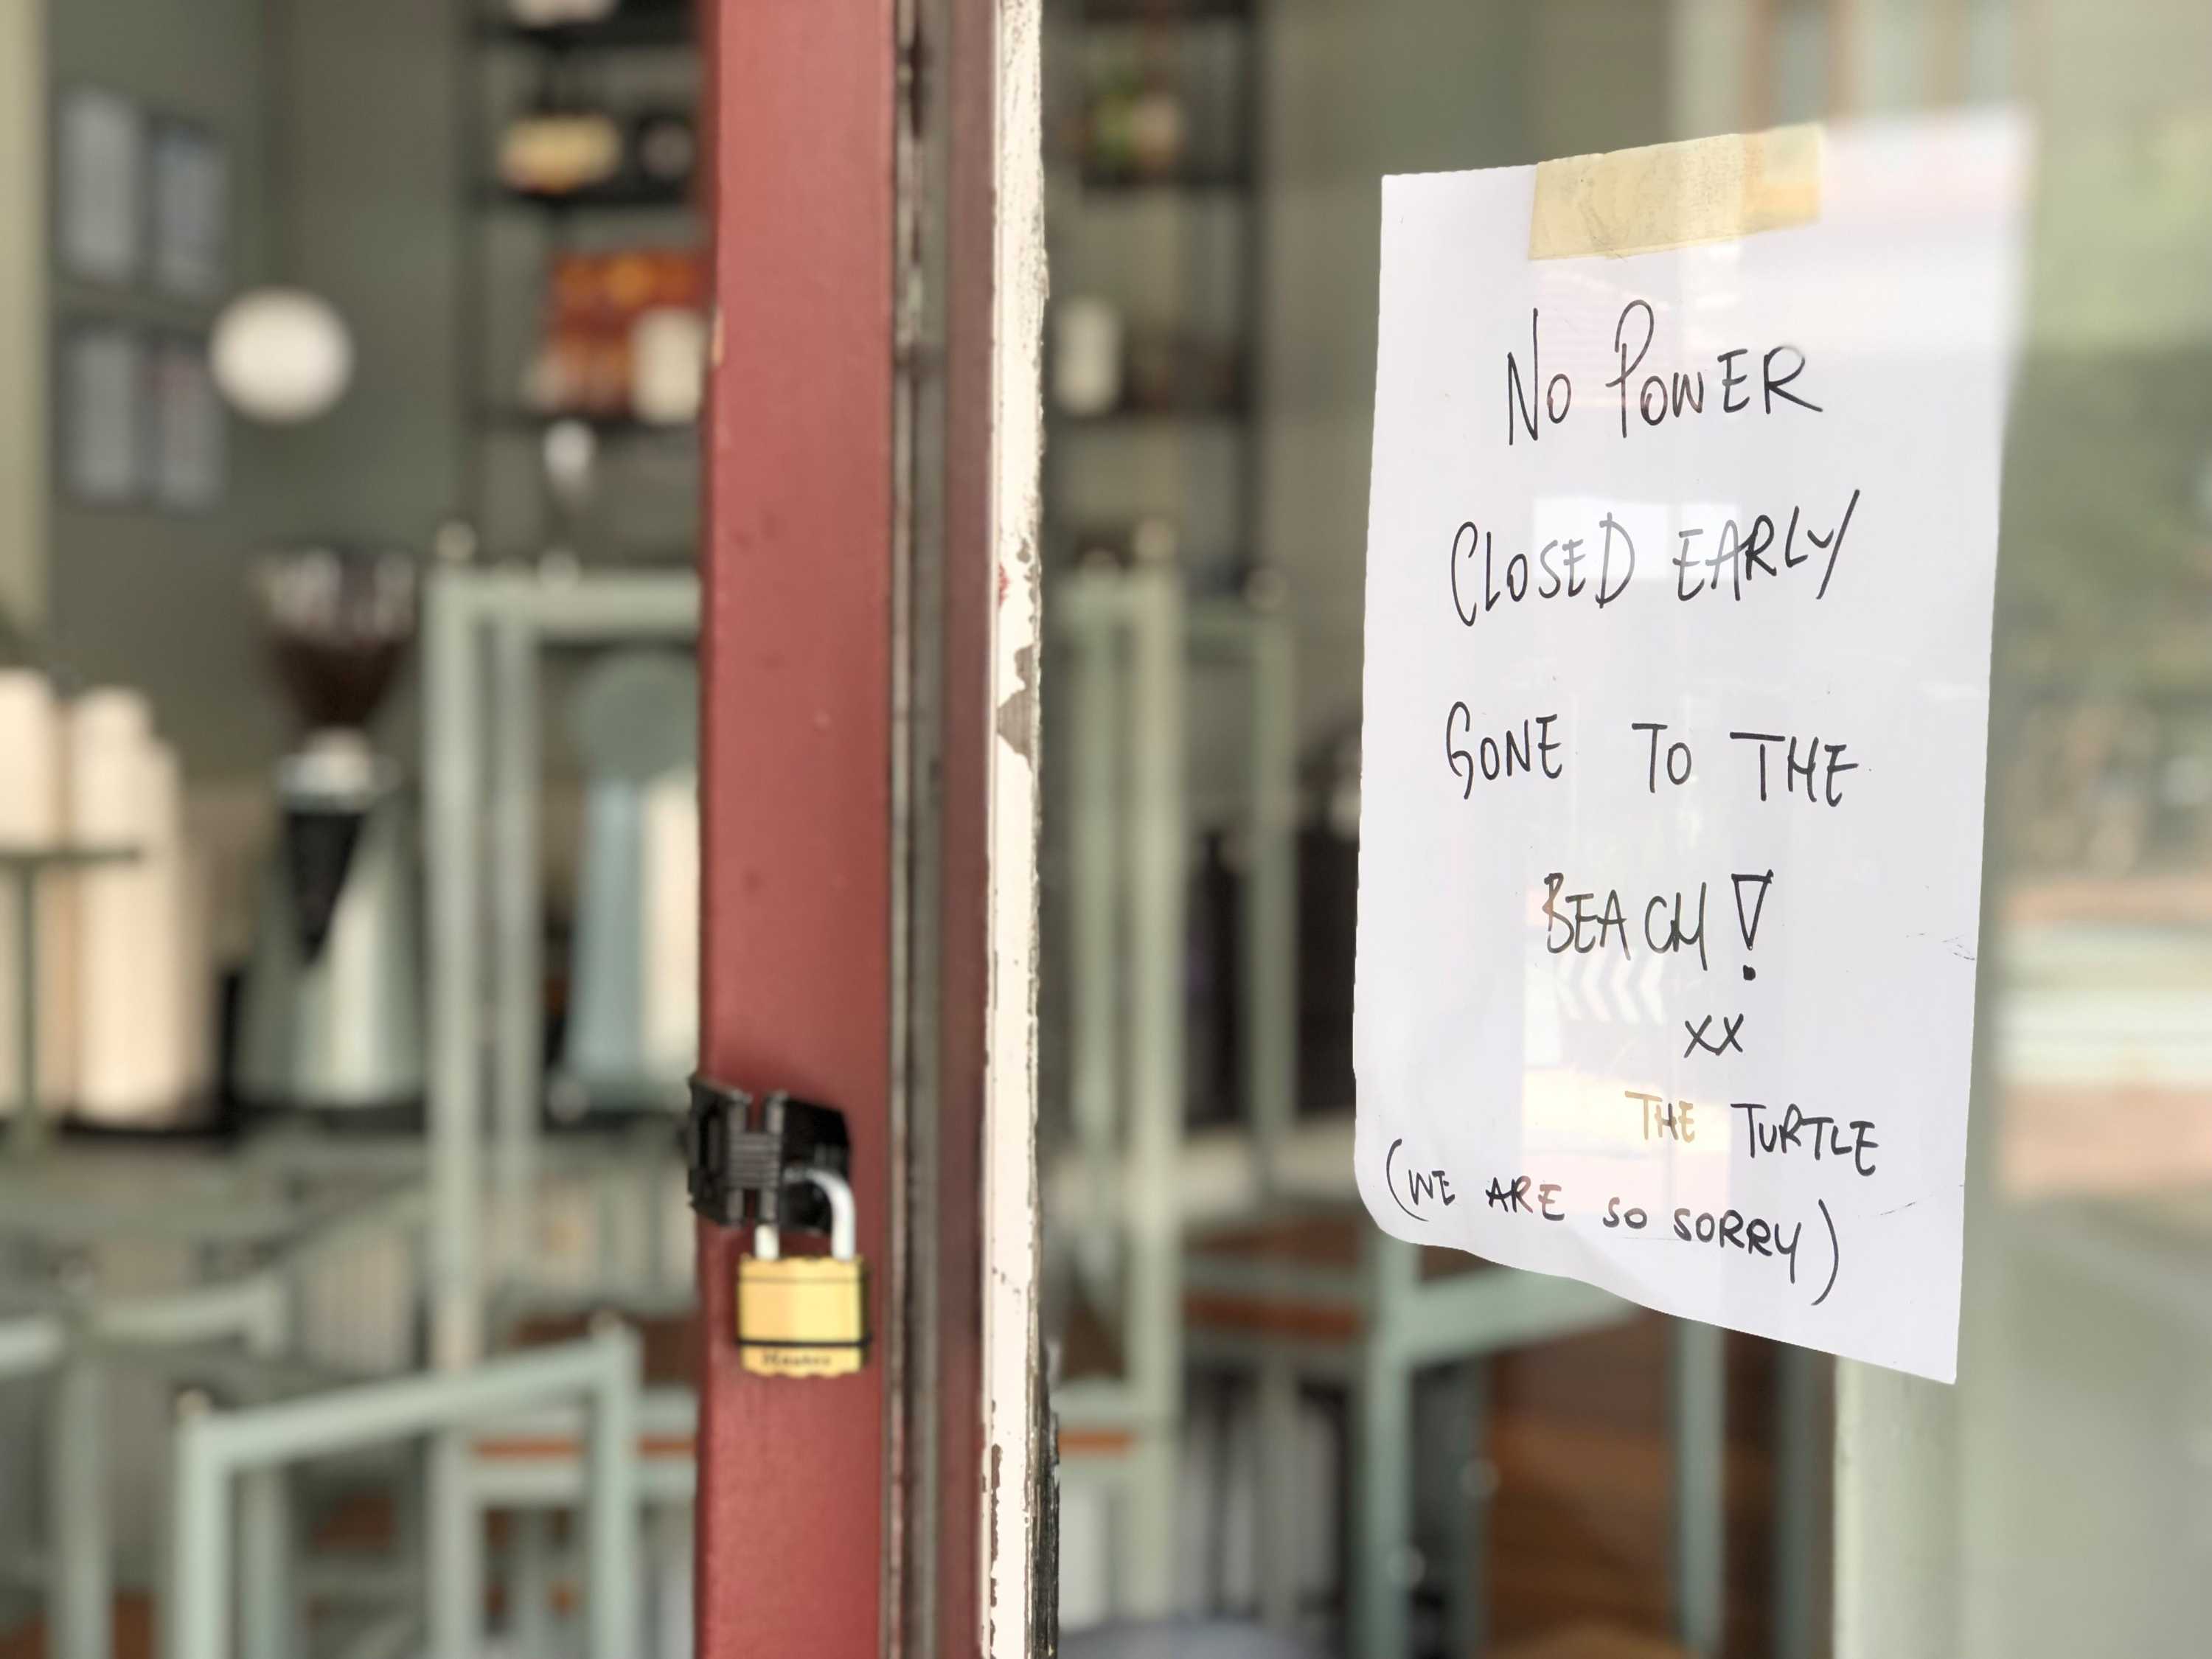 No PoWER
CLoSED EARLY
GONE TO THE
BEACH!
xx
THE TURTLE
(WE ARE SO SORRY)
Master